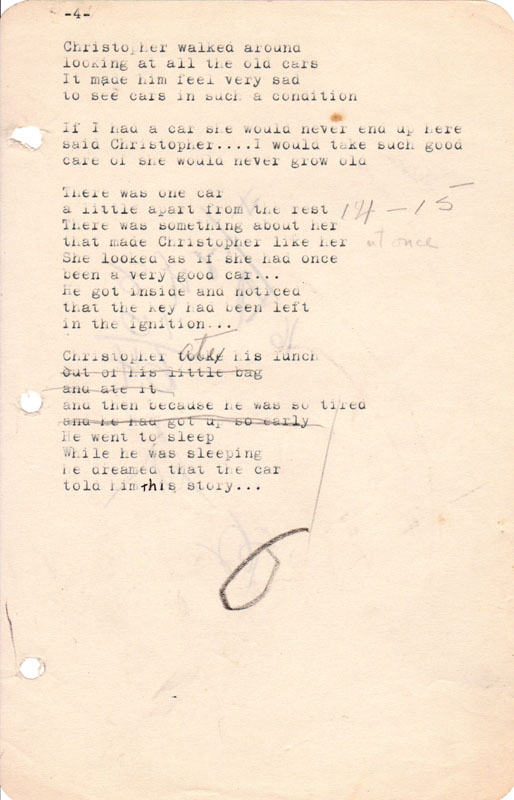 -4-
Christopher walked around
looking at all the old cars
It made him feel very sad
to see cars in such a condition
If I had a car she would never end up here
said Christopher....I would take such good
care of she would never grow old
There was one car
a little apart from the rest 14-15
There was something about her
that made Christopher like her at once
She looked as if she had once
been a very good car...
He got inside and noticed
that the key had been left
in the ignition...
Christopher tooke ate his lunch
Out of his little bag
and ate it
and then because he was so tired
and he had got up so early
He went to sleep
While he was sleeping
he dreamed that the car
told him this story...